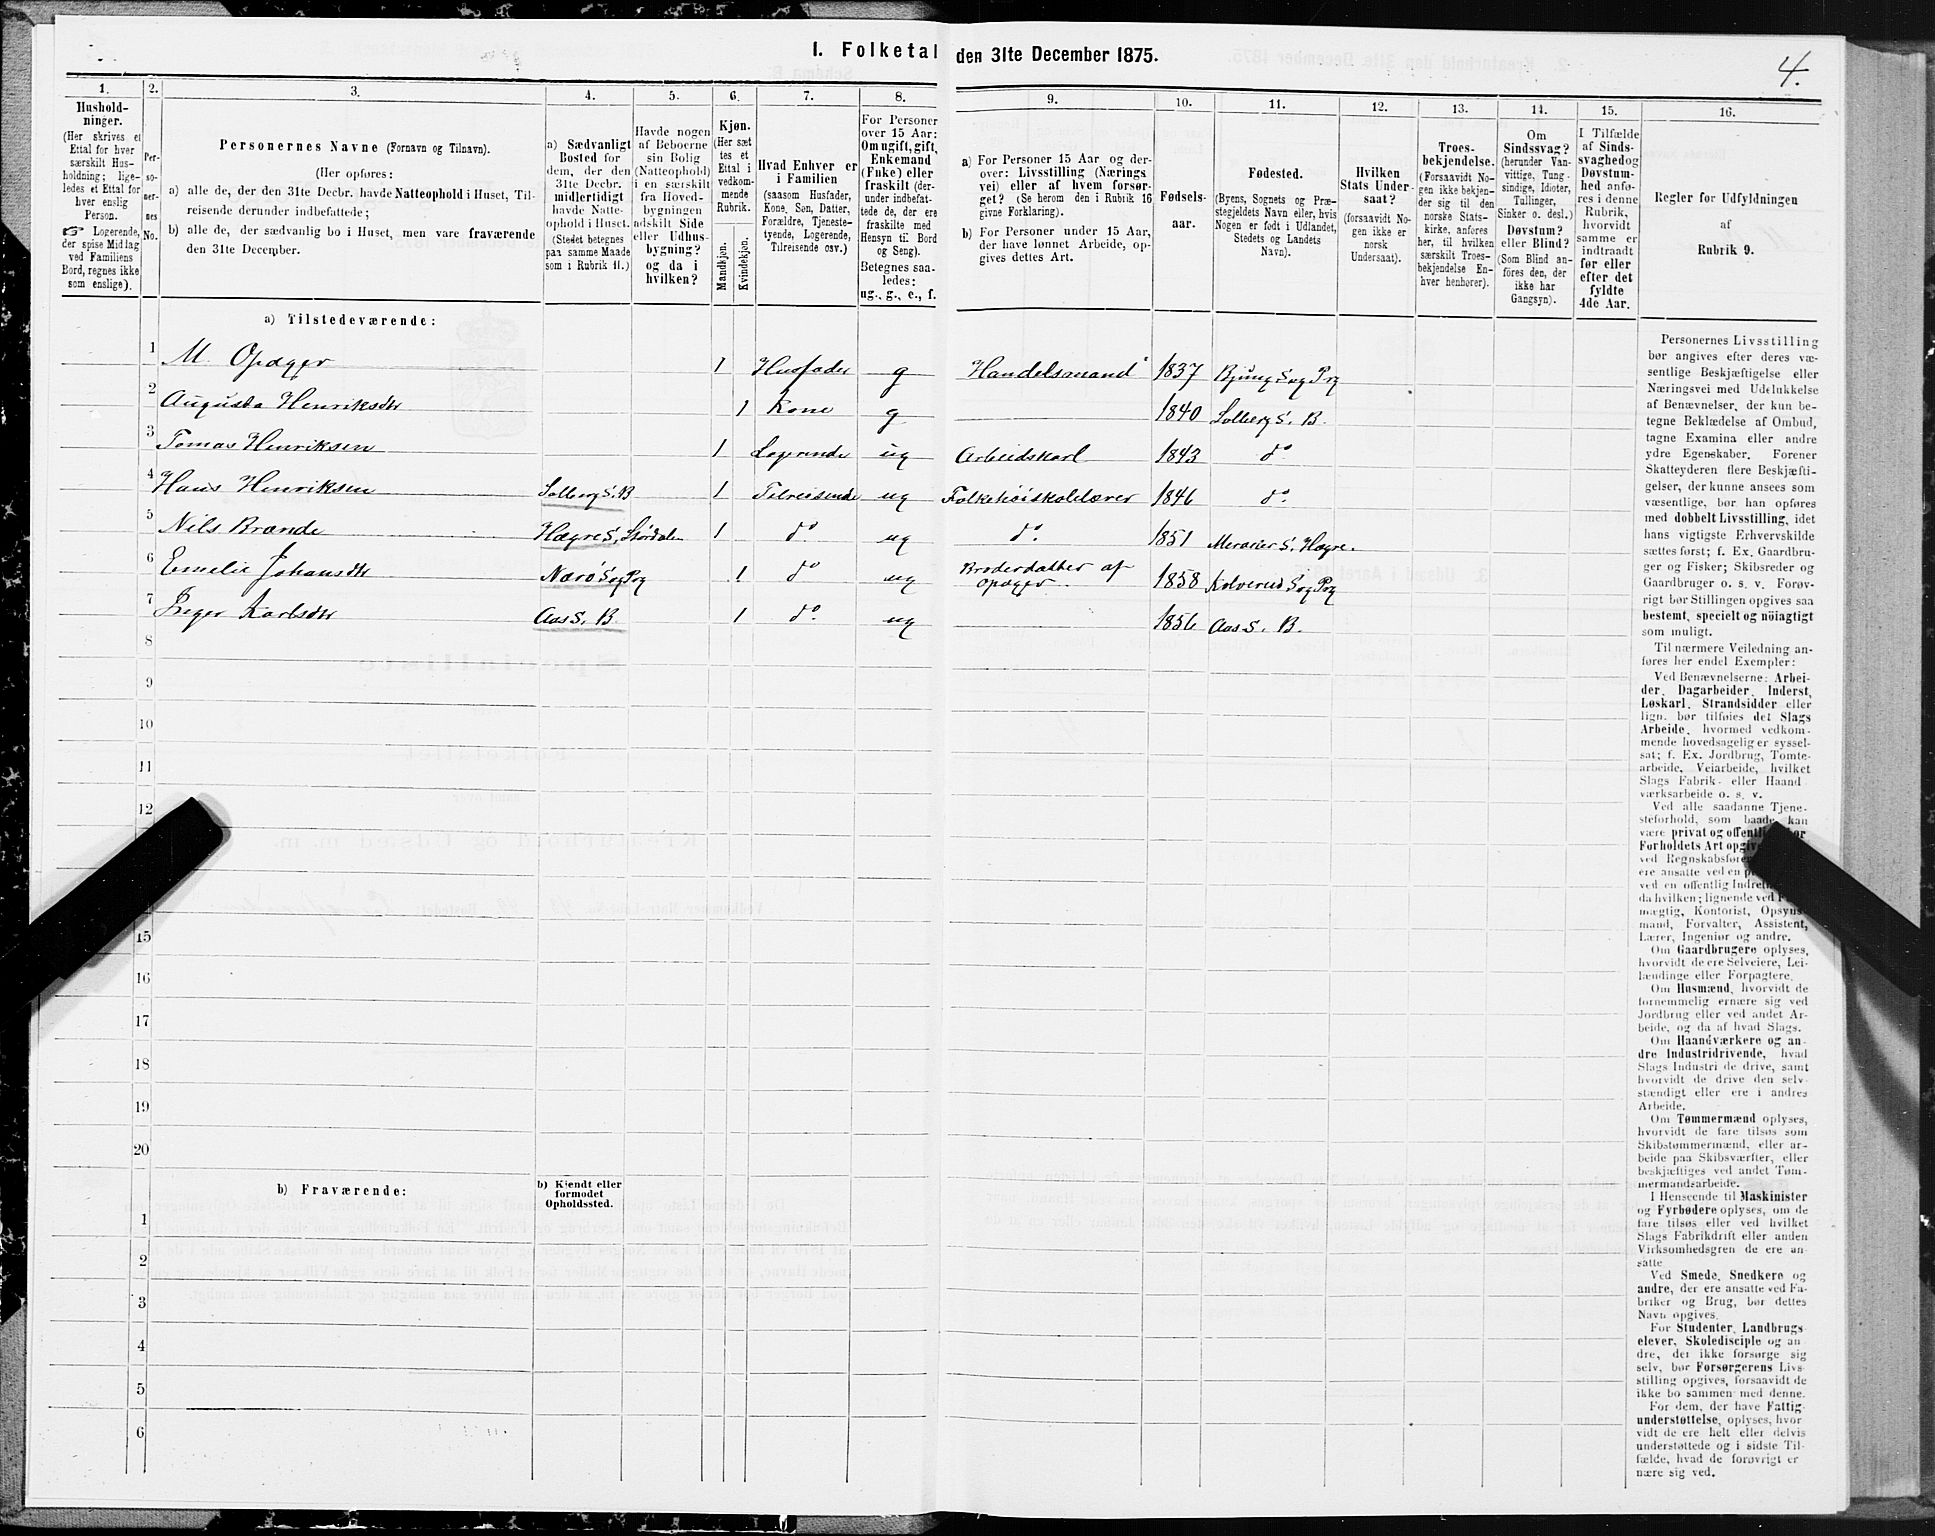 I. Folketal den 31te December 1875.
4.
1. 2. 3. 4. 5. 6. 7. 8. 9. 10. 11. 12. 13. 14. 15. 16.
Hushold-
ninger.
(Her skrives et
Ettal for hver
særskilt Hus-
holdning; lige-
ledes et Ettal for
hver enslig
Person.
☞ Logerende,
der spise Middag
ved Familiens
Bord, regnes ikke
som enslige).
Per-
so-
ner-
nes
No.
Personernes Navne (Fornavn og Tilnavn).
(Her opføres:
a) alle de, der den 31te Decbr. havde Natteophold i Huset, Til-
reisende derunder indbefattede;
b) alle de, der sædvanlig bo i Huset, men vare fraværende
den 31te December.
a) Sædvanligt
Bosted for
dem, der den
31te Decbr.
midlertidigt
havde Natte-
ophold i Huset.
(Stedet betegnes
paa samme Maade
som i Rubrik 11.)
Havde nogen
af Beboerne
sin Bolig
(Natteophold)
i en særskilt
fra Hoved-
bygningen
adskilt Side
eller Udhus-
bygning?
og da i
hvilken?
Kjøn.
(Her sæt
tes et
Ettal i
vedkom-
mende
Rubrik.
Mandkjøn.
Kvindekjøn.
Hvad Enhver er
i Familien
(saasom Husfader,
Kone, Søn, Datter,
Forældre, Tjeneste-
tyende, Logerende,
Tilreisende osv.)
For Personer
over 15 Aar:
Om ugift, gift,
Enkemand
(Enke) eller
fraskilt (der-
under indbefat-
tede de, der ere
fraskilte med
Hensyn til Bord
og Seng).
Betegnes saa-
ledes:
ug., g., e., f.
a) For Personer 15 Aar og der-
over: Livsstilling (Nærings
vei) eller af hvem forsør-
get? (Se herom den i Rubrik 16
givne Forklaring).
b) For Personer under 15 Aar,
der have lønnet Arbeide, op-
gives dettes Art.
Fødsels-
aar.
Fødested.
(Byens, Sognets og Præ-
stegjeldets Navn eller, hvis
Nogen er født i Udlandet,
Stedets og Landets
Navn).
Hvilken
Stats Under-
saat?
(forsaavidt No-
gen ikke er
norsk
Undersaat).
Troes-
bekjendelse.
(Forsaavidt No-
gen ikke bekjen-
der sig til den
norske Stats-
kirke, anføres
her, til hvilken
særskilt Troes-
bekjendelse En-
hver henhører).
Om
Sindssvag?
(herunder Van-
vittige, Tung-
sindige, Idioter,
Tullinger,
Sinker o. desl.)
Døvstum?
eller Blind?
(Som Blind an-
føres den, der
ikke har
Gangsyn).
I Tilfælde
af Sinds-
svaghed og
Døvstum-
hed anfø-
res i denne
Rubrik,
hvorvidt
samme er
indtraadt
før eller
efter det
fyldte
4de Aar.
Regler for Udfyldningen
af
Rubrik 9.
a) Tilstedeværende:
1 M. Opdager 1 Husfader g Handelsmand 1837 Bjungs S og Prg
2 Augusta Henriksdtr 1 Kone g 1840 Solberg S. B.
3 Tomas Henriksen 1 Logerende ug Arbeidskarl 1843 do
4 Hans Henriksen Solberg S. B 1 Tilreisende ug Folkehøiskolelærer 1846 do.
5 Nils Brænde Hægre S. Størdalen 1 do ug do. 1851 Meraker S. Hægre.
6 Emelie Johansdtr Nærø S og Prg 1 do ug Broderdatter af
Opdager. 1858 Kolvereid S og Prg
7 Karlsdtr Aas S. B. 1 do. ug 1856 Aas S. B.
8
9
10
11
12
15
16
17
18
19
20
b) Fraværende:
b) Kjendt eller
formodet
Opholdssted.
1
2
3
4
5
6
Personernes Livsstilling
bør angives efter deres væ-
sentlige Beskjæftigelse eller
Næringsvei med Udelukkelse
af Benævnelser, der kun be-
tegne Beklædelse af Ombud,
tagne Examina eller andre
ydre Egenskaber. Forener
Skatteyderen flere Beskjæfti-
gelser, der kunne ansees som
væsentlige, bør han opføres
med dobbelt Livsstilling, idet
hans vigtigste Erhvervskilde
sættes først; f. Ex. Gaardbru-
ger og Fisker; Skibsreder og
Gaardbruger o. s. v. Forøv-
rigt bør Stillingen opgives saa
bestemt, specielt og nöiagtigt
som muligt.
Til nærmere Veiledning an-
føres her endel Exempler:
Ved Benævnelserne: Arbei-
der, Dagarbeider, Inderst,
Løskarl, Strandsidder eller
lign. bør tilføies det Slags
Arbeide, hvormed vedkom-
mende hovedsagelig er syssel-
sat; f. Ex. Jordbrug, Tomte-
arbeide, Veiarbeide, hvilket
Slags Fabrik- eller Haand-
værksarbeide o. s. v.
Ved alle saadanne Tjene-
steforhold, som baade kan
være privat og offentli
Forholdets Art opgiv
ved Regnskabsføre
ere ansatte ved en p
ved en offentlig Indret
da hvilken; lignende ved F
mægtig, Kontorist, Opsyns-
mand, Forvalter, Assistent,
Lærer, Ingeniør og andre.
Om Gaardbrugere oplyses,
hvorvidt de ere Selveiere, Lei-
lændinge eller Forpagtere.
Om Husmænd, hvorvidt de
fornemmelig ernære sig ved
Jordbrug eller ved andet Ar-
beide, og da af hvad Slags.
Om Haandværkere og an-
dre Industridrivende, hvad
Slags Industri de drive, samt
hvorvidt de drive den selv-
stændigt eller ere i andres
Arbeide.
Om Tømmermænd oplyses,
hvorvidt de fare tilsøs som
Skibstømmermænd, eller ar-
beide paa Skibsværfter, eller
beskjæftiges ved andet Tøm-
mermandsarbeide.
I Henseende til Maskinister
og Fyrbødere oplyses, om de
fare tilsøs eller ved hvilket
Slags Fabrikdrift eller anden
Virksomhedsgren de ere an-
satte
Ved Smede, Snedkere og
andre, der ere ansatte ved Fa-
briker og Brug, bør dettes
Navn opgives.
For Studenter, Landbrugs
elever, Skoledisciple og an
dre, der ikke forsørge sig
selv, bør Forsørgerens Livs-
stilling opgives, forsaavidt de
ikke bo sammen med denne.
For dem, der have Fattig-
understøttelse, oplyses, hvor
vidt de ere helt eller delvis
understøttede og i sidste Til-
fælde, hvad de forøvrigt er
nære sig ved.